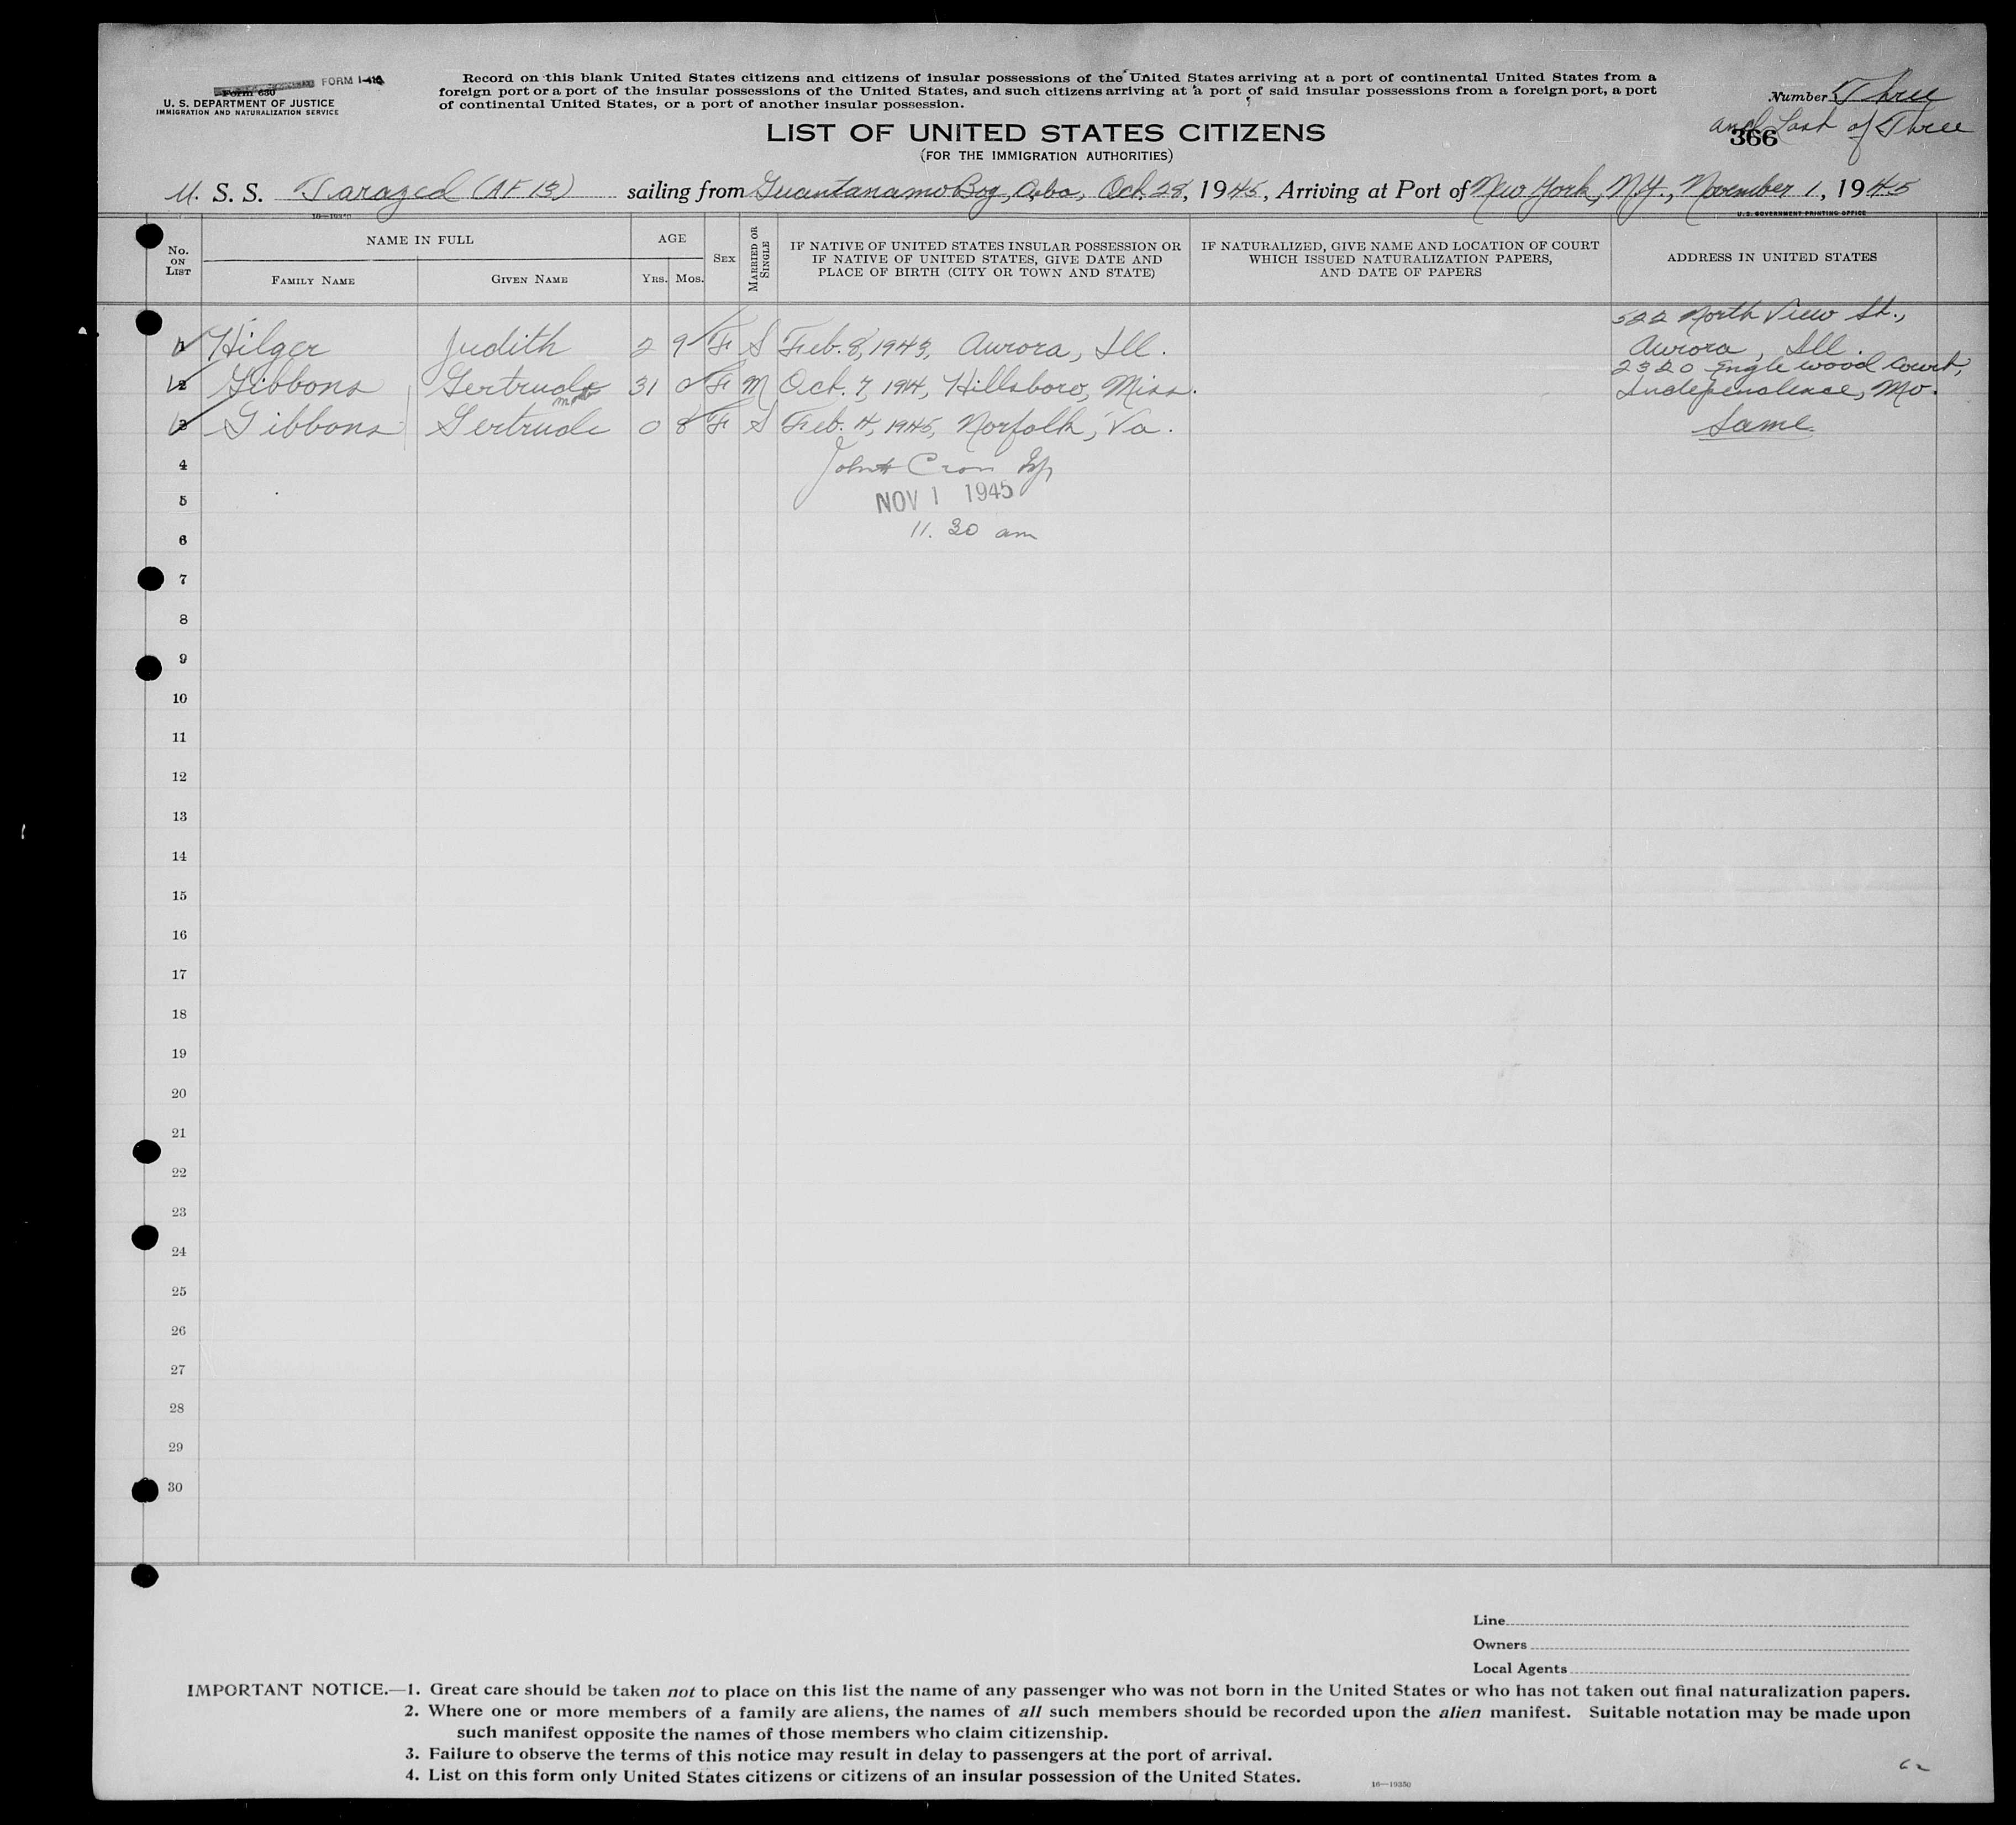 FORM I-416
Form 630
U. S. DEPARTMENT OF JUSTICE
IMMIGRATION AND NATURALIZATION SERVICE
Record on this blank United States citizens and citizens of insular possessions of the United States arriving at a port of continental United States from a
foreign port or a port of the insular possessions of the United States, and such citizens arriving at a port of said insular possessions from a foreign port, a port
of continental United States, or a port of another insular possession.
Number Three
and Last of Three
366
LIST OF UNITED STATES CITIZENS
(FOR THE IMMIGRATION AUTHORITIES)
U. S. S. Tarazed (AF 13) sailing from Guantanamo Bay, Cuba, Oct. 28, 1945, Arriving at Port of New York, N.Y., November 1, 1945
16—19350
U. S. GOVERNMENT PRINTING OFFICE
No. ON LIST
NAME IN FULL
FAMILY NAME GIVEN NAME
AGE
YRS. MOS.
SEX
MARRIED OR SINGLE
IF NATIVE OF UNITED STATES INSULAR POSSESSION OR
IF NATIVE OF UNITED STATES, GIVE DATE AND
PLACE OF BIRTH (CITY OR TOWN AND STATE)
IF NATURALIZED, GIVE NAME AND LOCATION OF COURT
WHICH ISSUED NATURALIZATION PAPERS,
AND DATE OF PAPERS
ADDRESS IN UNITED STATES
522 North View St.,
1 Hilger Judith 2 9 F S Feb. 8, 1943, Aurora, Ill. Aurora, Ill.
2320 Englewood Court,
2 Gibbons Gertrude 31 0 F M Oct. 7, 1914, Hillsboro, Miss. Independence, Mo.
3 Gibbons Gertrude 0 8 F S Feb. 4, 1945, Norfolk, Va. Same
4 John Cron
5 NOV 1 1945
6 11.30 am
7
8
9
10
11
12
13
14
15
16
17
18
19
20
21
22
23
24
25
26
27
28
29
30
Line
Owners
Local Agents
IMPORTANT NOTICE.—1. Great care should be taken not to place on this list the name of any passenger who was not born in the United States or who has not taken out final naturalization papers.
2. Where one or more members of a family are aliens, the names of all such members should be recorded upon the alien manifest. Suitable notation may be made upon
such manifest opposite the names of those members who claim citizenship.
3. Failure to observe the terms of this notice may result in delay to passengers at the port of arrival.
4. List on this form only United States citizens or citizens of an insular possession of the United States.
16—19350